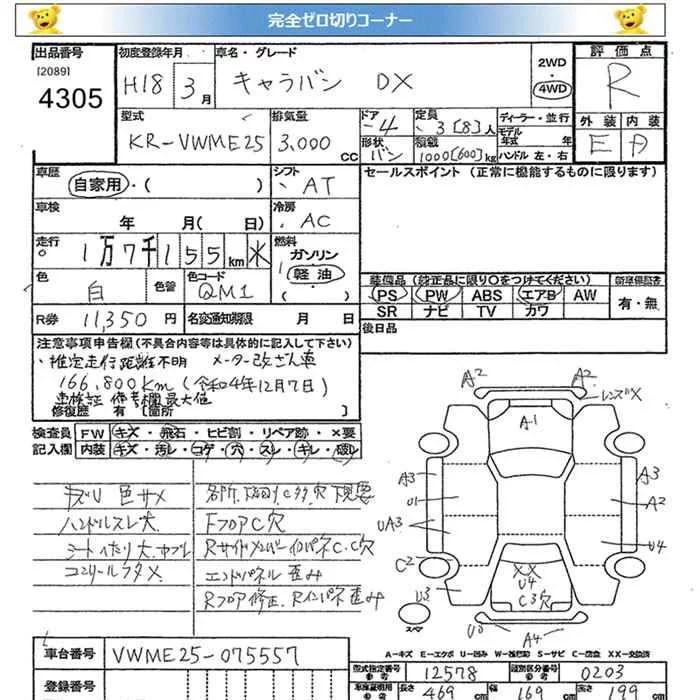 完全ゼロ切りコーナー
出品番号
[2089]
4305
初度登録年月
H18 3月
車名・グレード
キャラバン DX
2WD
・
4WD
評価点
R
外装 内装
E D
型式
KR-VWME25
排気量
3,000 cc
ドア
4
形状
バン
定員
3[8]人
積載
1000[600]kg
ディーラー・並行
モデル年式 年
ハンドル 左・右
車歴
自家用・( )
シフト
AT
車検
年 月( 日)
冷房
AC
走行
1万7千155km ※
燃料
ガソリン
軽油
( )
色
白
色替
色コード
QM1
R券
11,350 円
名変通知期限 月 日
セールスポイント (正常に機能するものに限ります)
装備品 (純正品に限り○をつけてください)
PS PW ABS エアB AW
SR ナビ TV カワ
新車保証書
有・無
後日品
注意事項申告欄(不具合内容等は具体的に記入して下さい)
・推定走行距離不明 メーター改ざん車
166,800km (令和4年12月7日)
車検証 備考欄最大値
修復歴 有 [箇所 ]
検査員
記入欄
FW キズ・飛石・ヒビ割・リペア跡・×要
内装 キズ・汚レ・コゲ・穴・スレ・キレ・破レ
キズU 色サメ
ハンドルスレ大
シートへたり大
各所 下回り
FフロアC穴
エンドパネル 歪み
Rフロア修正. Rインパネ歪み
A2
A2
レンズX
A-1
A3
U1
UA3
C2
U3
A3
A2
U4
XX
U4
C3穴
A4
スペア
A-キズ E-エクボ U-凹み W-補修跡 S-サビ C-腐食 XX-交換済
車台番号
VWME25-075557
登録番号
型式指定番号
12578
類別区分番号
0203
長さ 469 cm
幅 169 cm
高さ 199 cm